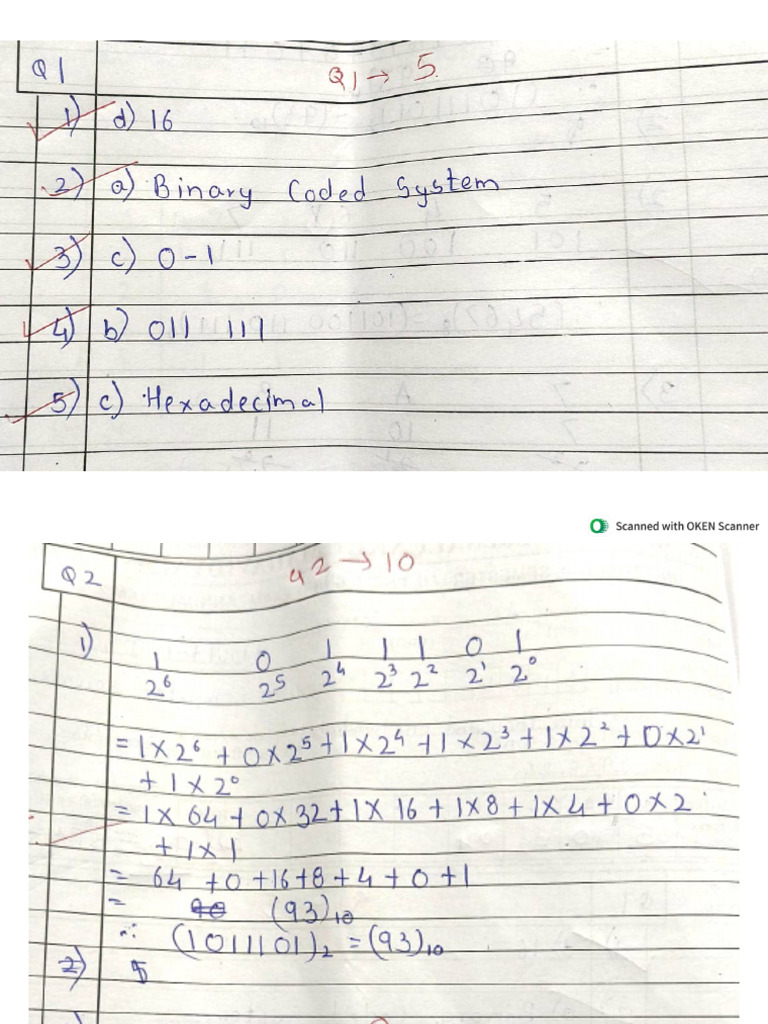 Q1
Q1 → 5
1) d) 16
2) a) Binary Coded System
3) c) 0-1
4) b) 0111 111
5) c) Hexadecimal
Scanned with OKEN Scanner
Q2
Q2 → 10
1)
1 0 1 1 1 0 1
2⁶ 2⁵ 2⁴ 2³ 2² 2¹ 2⁰
= 1×2⁶ + 0×2⁵ + 1×2⁴ + 1×2³ + 1×2² + 0×2¹
+ 1×2⁰
= 1×64 + 0×32 + 1×16 + 1×8 + 1×4 + 0×2
+ 1×1
= 64 + 0 + 16 + 8 + 4 + 0 + 1
= (93)₁₀
∴ (1011101)₂ = (93)₁₀
2) 5